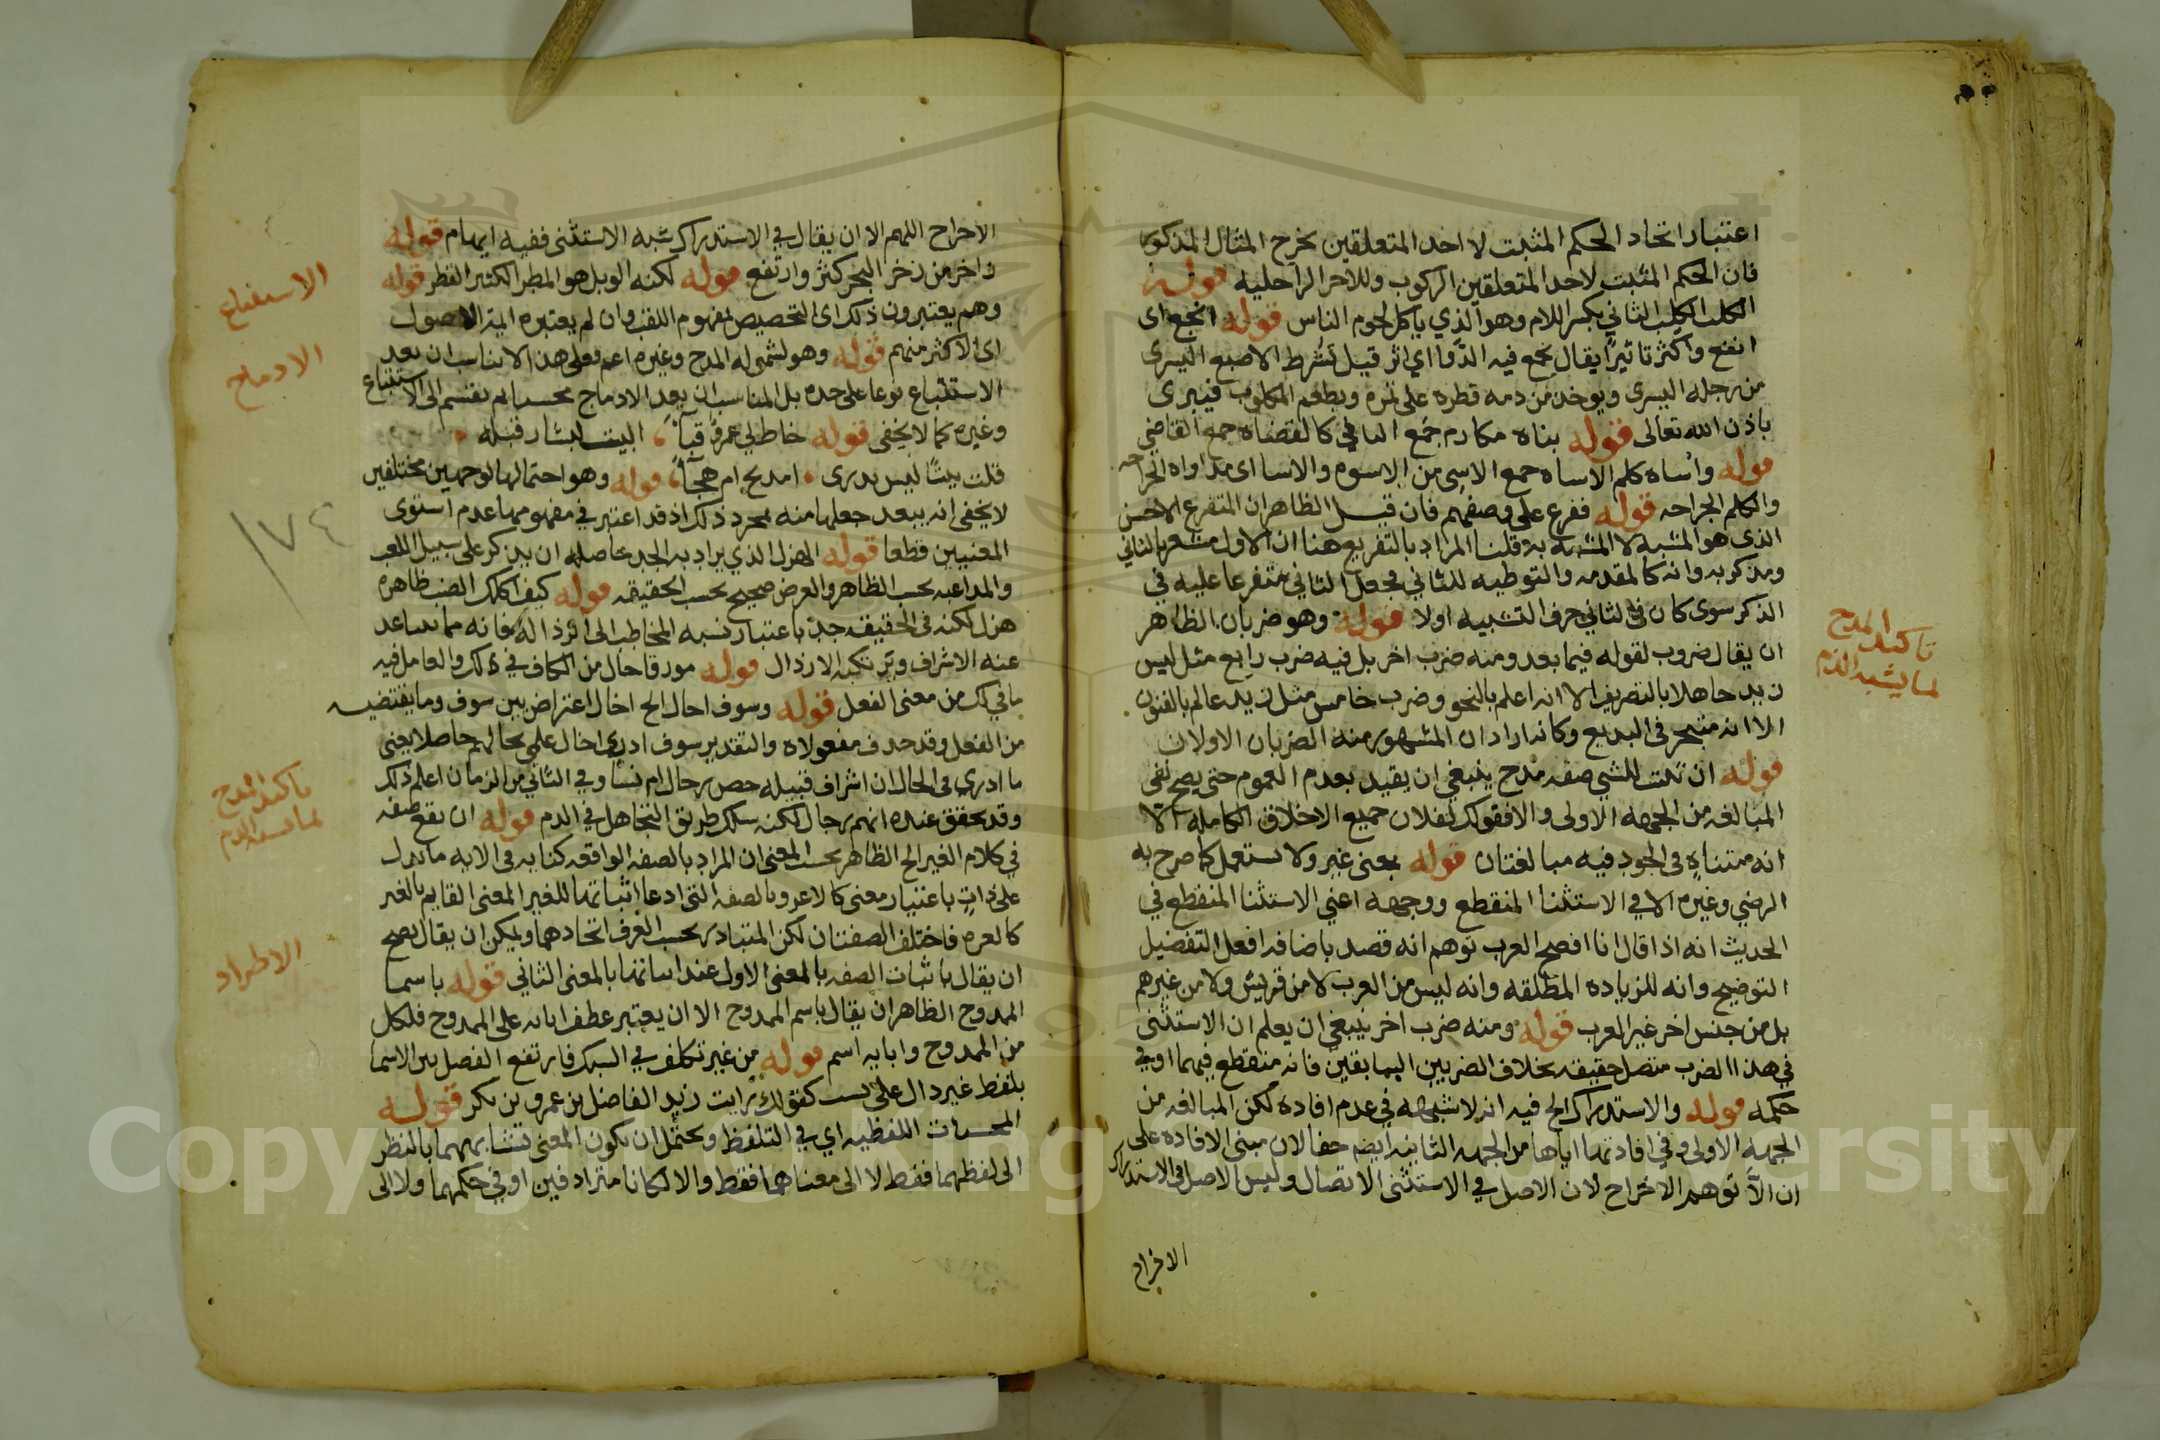 اعتبار اتحاد الحكم المثبت لاحد المتعلقين يخرج المثال المذكور
فان الحكم المثبت لاحد المتعلقين الركوب وللاخر الراحليه قوله
الكلب الكلب الثاني بكسر اللام وهو الذي ياكل لحوم الناس قوله انجع اى
انفع واكثر تاثيرا يقال نجع فيه الدوا اي اثر قيل تشرط الاصبع اليسرى
من رجله اليسرى ويوخذ من دمه قطرة على تمرة ويطعم المكلوب فيبرى
باذن الله تعالى قوله بناة مكارم جمع الباني كالقضاة جمع القاضي
قوله واساة كلم الاساة جمع الاسى من الاسو والاسا اى مداواة الجراحه
والكلم الجراحه قوله ففرع على وصفهم فان قيل الظاهر ان المتفرع الاخر
الذى هو المشبه لا المشبه به قلنا المراد بالتفريع هنا ان الاول مشعر بالثاني
ومذكر به وانه كالمقدمه والتوطيه للثاني فجعل الثاني متفرعا عليه في
الذكر سوى كان في الثاني حرف التشبيه اولا قوله وهو ضربان الظاهر
ان يقال ضروب لقوله فيما بعد ومنه ضرب اخر بل فيه ضرب رابع مثل ليس
زيد جاهلا بالتصريف الا انه اعلم بالنحو وضرب خامس مثل زيد عالم بالفنون
الا انه متبحر في البديع وكانه اراد ان المشهور منه الضربان الاولان
قوله ان تثبت للشي صفه مدح ينبغي ان يقيد بعدم العموم حتى يصح نفى
المبالغه من الجهه الاولى والا فقولك لفلان جميع الاخلاق الكامله الا
انه متناه في الجود فيه مبالغتان قوله بمعنى غير ولا تستعمل كما صرح به
الرضي وغيره الا في الاستثنا المنقطع ووجهه اعني الاستثنا المنقطع في
الحديث انه اذا قال انا افصح العرب توهم انه قصد باضافه افعل التفضيل
التوضيح وانه للزياده المطلقه وانه ليس من العرب لا من قريش ولا من غيرهم
بل من جنس اخر غير العرب قوله ومنه ضرب اخر ينبغي ان يعلم ان الاستثنى
في هذا الضرب متصل حقيقه بخلاف الضربين السابقين فانه منقطع فيهما او في
حكمه قوله والاستدراك الخ فيه انه لا شبهه في عدم افاده لكن المبالغه من
الجهه الاولى وفي افادتها اياها من الجهه الثانيه ايضا خفا لان مبنى الافاده على
ان الا توهم الاخراج لان الاصل في الاستثنى الاتصال وليس الاصل في الاستدراك
الاخراج
تاكيد المدح
لما يشبه الذم
الاخراج اللهم الا ان يقال في الاستدراك شبه الاستثنى ففيه ايهام قوله
زاخر من زخر البحر كثر وارتفع قوله لكنه الوبل هو المطر الكثير القطر قوله
وهم يعتبرون ذلك اى التخصيص بمفهوم اللقب وان لم يعتبره ايمة الاصول
اى الاكثر منهم قوله وهو لشموله المدح وغيره اعم فعلى هذا لا يناسب ان يعد
الاستتباع نوعا على حده بل المناسب ان يعد الادماج محسنا ثم يقسم الى الاستتباع
وغيره كما لا يخفى قوله خاط لي عمرو قبا البيت لبشار قبله
قلت بيتا ليس يدرى امديح ام هجا قوله وهو احتمالها لوجهين مختلفين
لا يخفى انه يبعد جعلها منه بمجرد ذلك اذ قد اعتبر في مفهومها عدم استوى
المعنيين قطعا قوله الهزل الذي يراد به الجد حاصله ان يذكر على سبيل اللعب
والمداعبه بحسب الظاهر والغرض صحيح بحسب الحقيقه قوله كيف اكلك الضب ظاهره
هزل لكنه في الحقيقه جد باعتبار نسبه المخاطب الى الرذاله فانه مما يتباعد
عنه الاشراف ويرتكبه الارذال قوله مورقا حال من الكاف في ذلك والعامل فيه
ما في لك من معنى الفعل قوله وسوف احال الخ اخال اعتراض بين سوف وما يقتضيه
من الفعل وقد حذف مفعولاه والتقدير سوف ادري اخال علمي بحالهم حاصلا يعني
ما ادري في الحال ان اشراف قبيله حصن رجال ام نسا وفي الثاني من الزمان اعلم ذلك
وقد تحقق عنده انهم رجال لكنه سلك طريق التجاهل في الذم قوله ان تقع صفه
في كلام الغير الخ الظاهر بحسب المعنى ان المراد بالصفه الواقعه كنايه في الايه ما يدل
على ذات باعتبار معنى كالاعز وبالصفه التى ادعا اثباتها للغير المعنى القايم بالغير
كالعزه فاختلف الصفتان لكن المتبادر بحسب العرف اتحادهما ويمكن ان يقال يصح
ان يقال باثبات الصفه بالمعنى الاول عند اثباتها بالمعنى الثاني قوله باسما
الممدوح الظاهر ان يقال باسم الممدوح الا ان يعتبر عطف ابائه على الممدوح فلكل
من الممدوح وابايه اسم قوله من غير تكلف في السبك فارتفع الفصل بين الاسما
بلفظ غير دال على نسب كقولك رايت زيد الفاضل بن عمرو بن بكر قوله
المحسنات اللفظيه اي في التلفظ ويحتمل ان يكون المعنى تشابههما بالنظر
الى لفظهما فقط لا الى معناهما فقط والا لكانا مترادفين او في حكمهما ولا الى
الاستتباع
الادماج
١٧٤
تاكيد المدح
لما يشبه الذم
الاطراد
Copyright © King Saud University